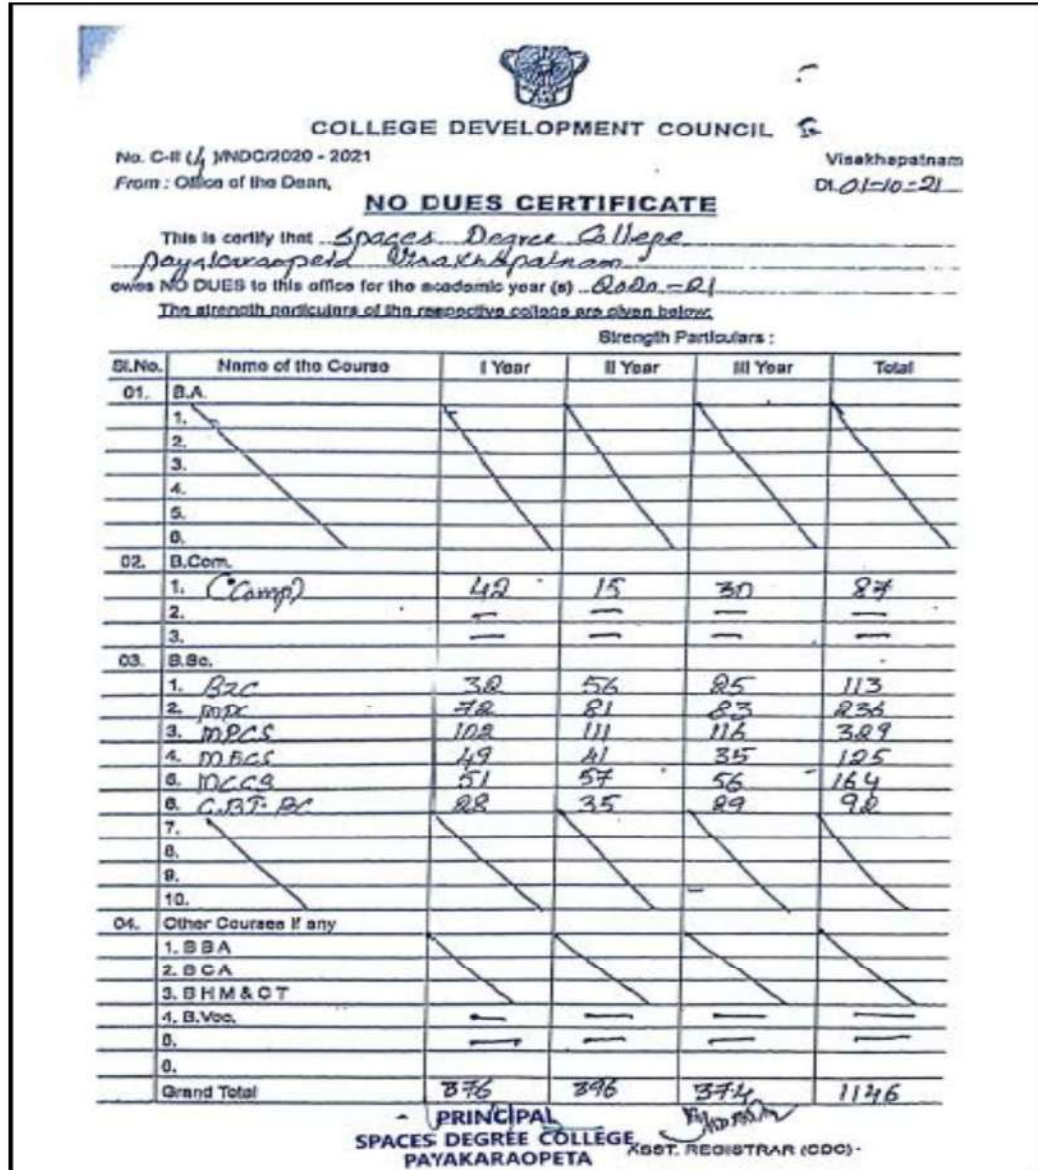 COLLEGE DEVELOPMENT COUNCIL
No. C-II (4) /NDC/2020 - 2021 Visakhapatnam
From : Office of the Dean, Dt. 01-10-21
NO DUES CERTIFICATE
This is certify that Spaces Degree College
Payakaraopeta Visakhapatnam
owes NO DUES to this office for the academic year (s) 2020-21
The strength particulars of the respective college are given below:
Strength Particulars :
Sl.No. Name of the Course I Year II Year III Year Total
01. B.A.
1.
2.
3.
4.
5.
6.
02. B.Com.
1. (Comp) 42 15 30 87
2. — — — —
3. — — — —
03. B.Sc.
1. BZC 32 56 25 113
2. MPC 72 81 83 236
3. MPCS 102 111 116 329
4. 49 41 35 125
5. 51 57 56 164
6. C.BT.BC 28 35 29 92
7.
8.
9.
10.
04. Other Courses if any
1. B B A
2. B C A
3. B H M & C T
4. B.Voc. — — — —
5. — — — —
6.
Grand Total 376 396 374 1146
PRINCIPAL
SPACES DEGREE COLLEGE
PAYAKARAOPETA
ASST. REGISTRAR (CDC)